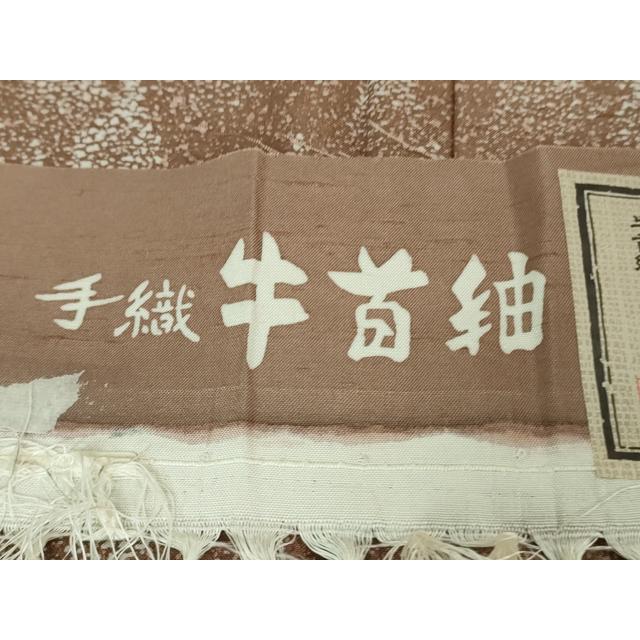 手織 牛首紬